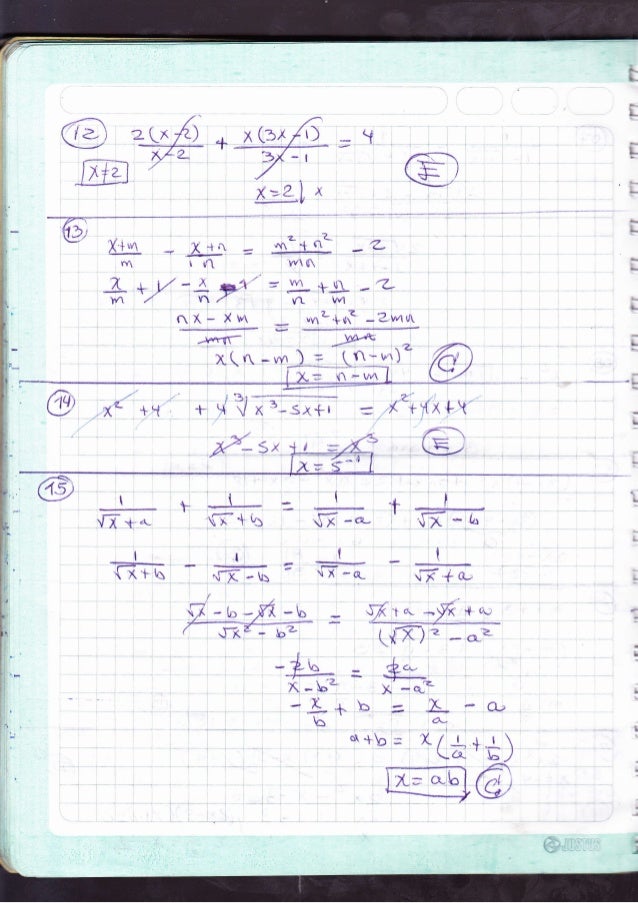 12 2(x-2)/x-2 + x(3x-1)/3x-1 = 4
x≠2 E
x=2 ↓ x
13
x+m/m - x+n/n = m²+n²/mn - 2
x/m + 1 - x/n - 1 = m/n + n/m - 2
nx - xm/mn = m²+n²-2mn/mn
x(n-m) = (n-m)² C
x = n-m
14 x² + 4 + 4∛x³-5x+1 = x²+4x+4
x³-5x+1 = x³ E
x = 5⁻¹
15
1/√x+a + 1/√x+b = 1/√x-a + 1/√x-b
1/√x+b - 1/√x-b = 1/√x-a - 1/√x+a
√x-b-√x-b/√x²-b² = √x+a-√x+a/(√x)²-a²
-2b/x-b² = 2a/x-a²
-x/b + b = x/a - a
a+b = x(1/a + 1/b)
x = ab C
JUSTUS